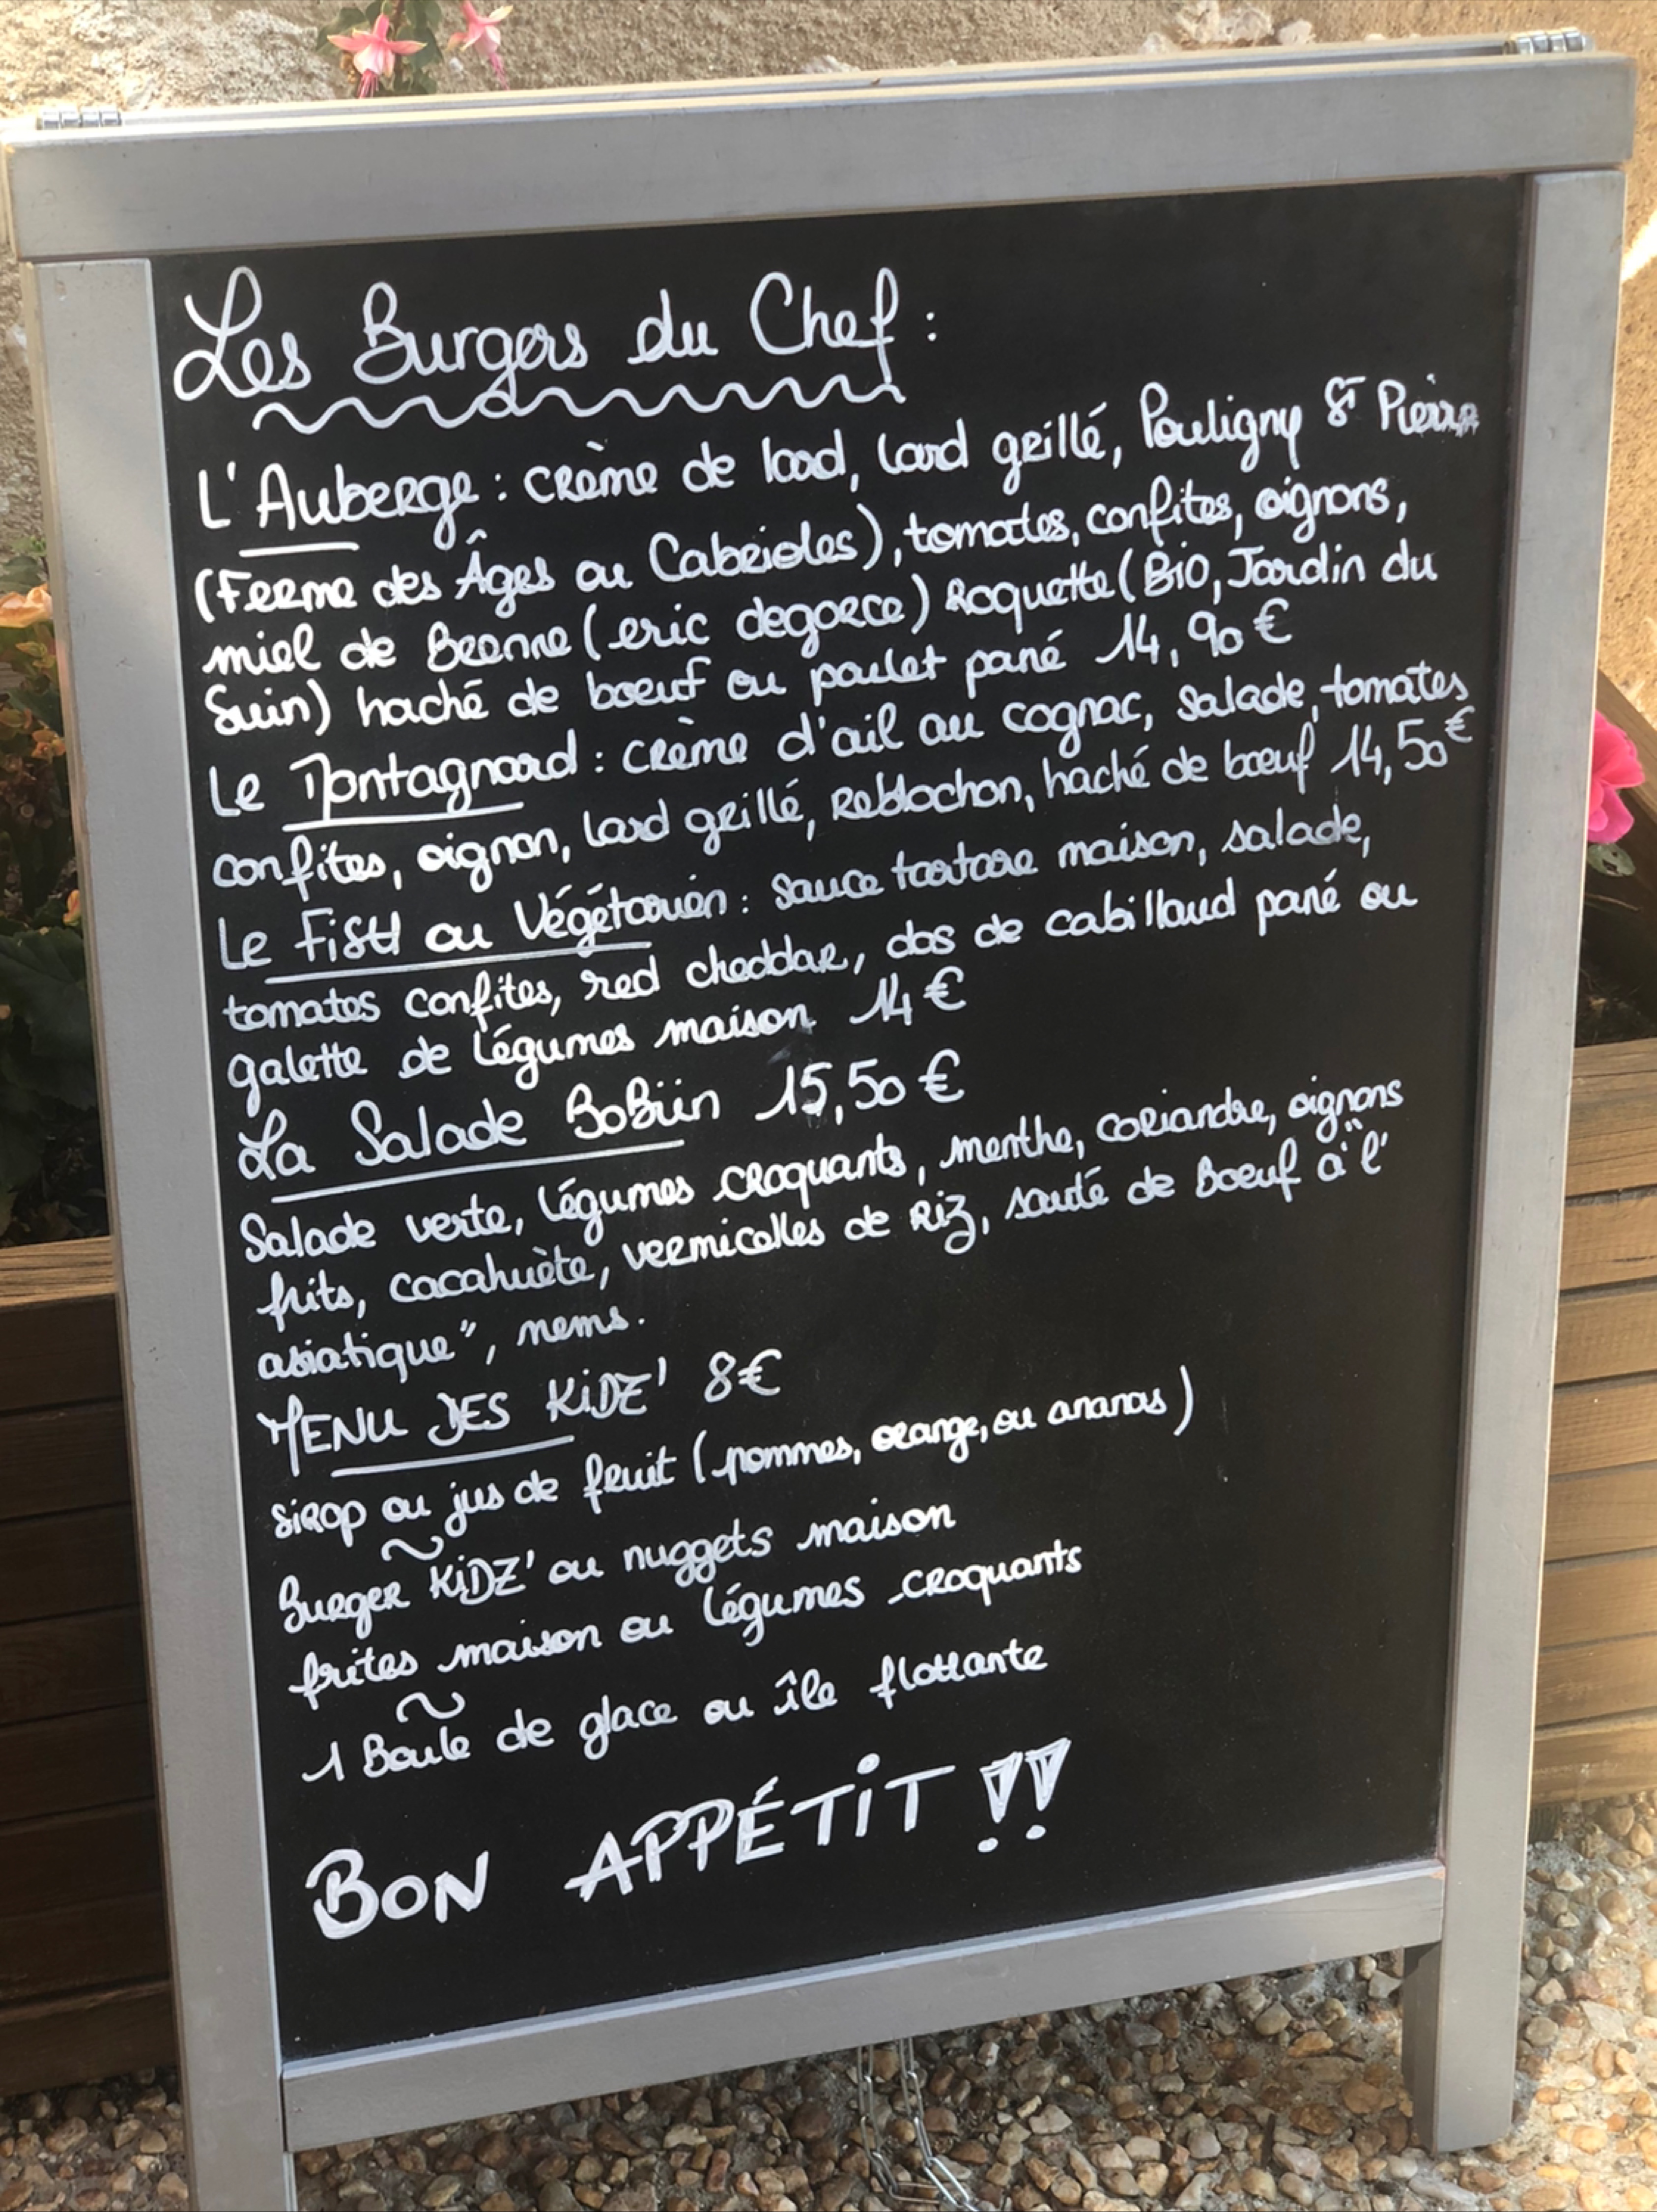 Les Burgers du Chef :
L'Auberge : crème de lard, lard grillé, Pouligny St Pierre
(Ferme des Âges ou Cabrioles), tomates confites, oignons,
miel de Brenne (eric degorce) Roquette (Bio, Jardin du
Suin) haché de boeuf ou poulet pané 14,90 €
Le Montagnard : crème d'ail au cognac, salade, tomates
confites, oignon, lard grillé, Reblochon, haché de boeuf 14,50€
Le Fish ou Végétarien : sauce tartare maison, salade,
tomates confites, red cheddar, dos de cabillaud pané ou
galette de légumes maison 14 €
La Salade BoBün 15,50 €
Salade verte, légumes croquants, menthe, coriandre, oignons
frits, cacahuète, vermicelles de Riz, sauté de Boeuf "à l'
asiatique", nems.
MENU DES KiDZ' 8€
sirop ou jus de fruit (pommes, orange, ou ananas)
~
Burger KiDZ' ou nuggets maison
frites maison ou légumes croquants
~
1 Boule de glace ou île flottante
BON APPÉTiT !!